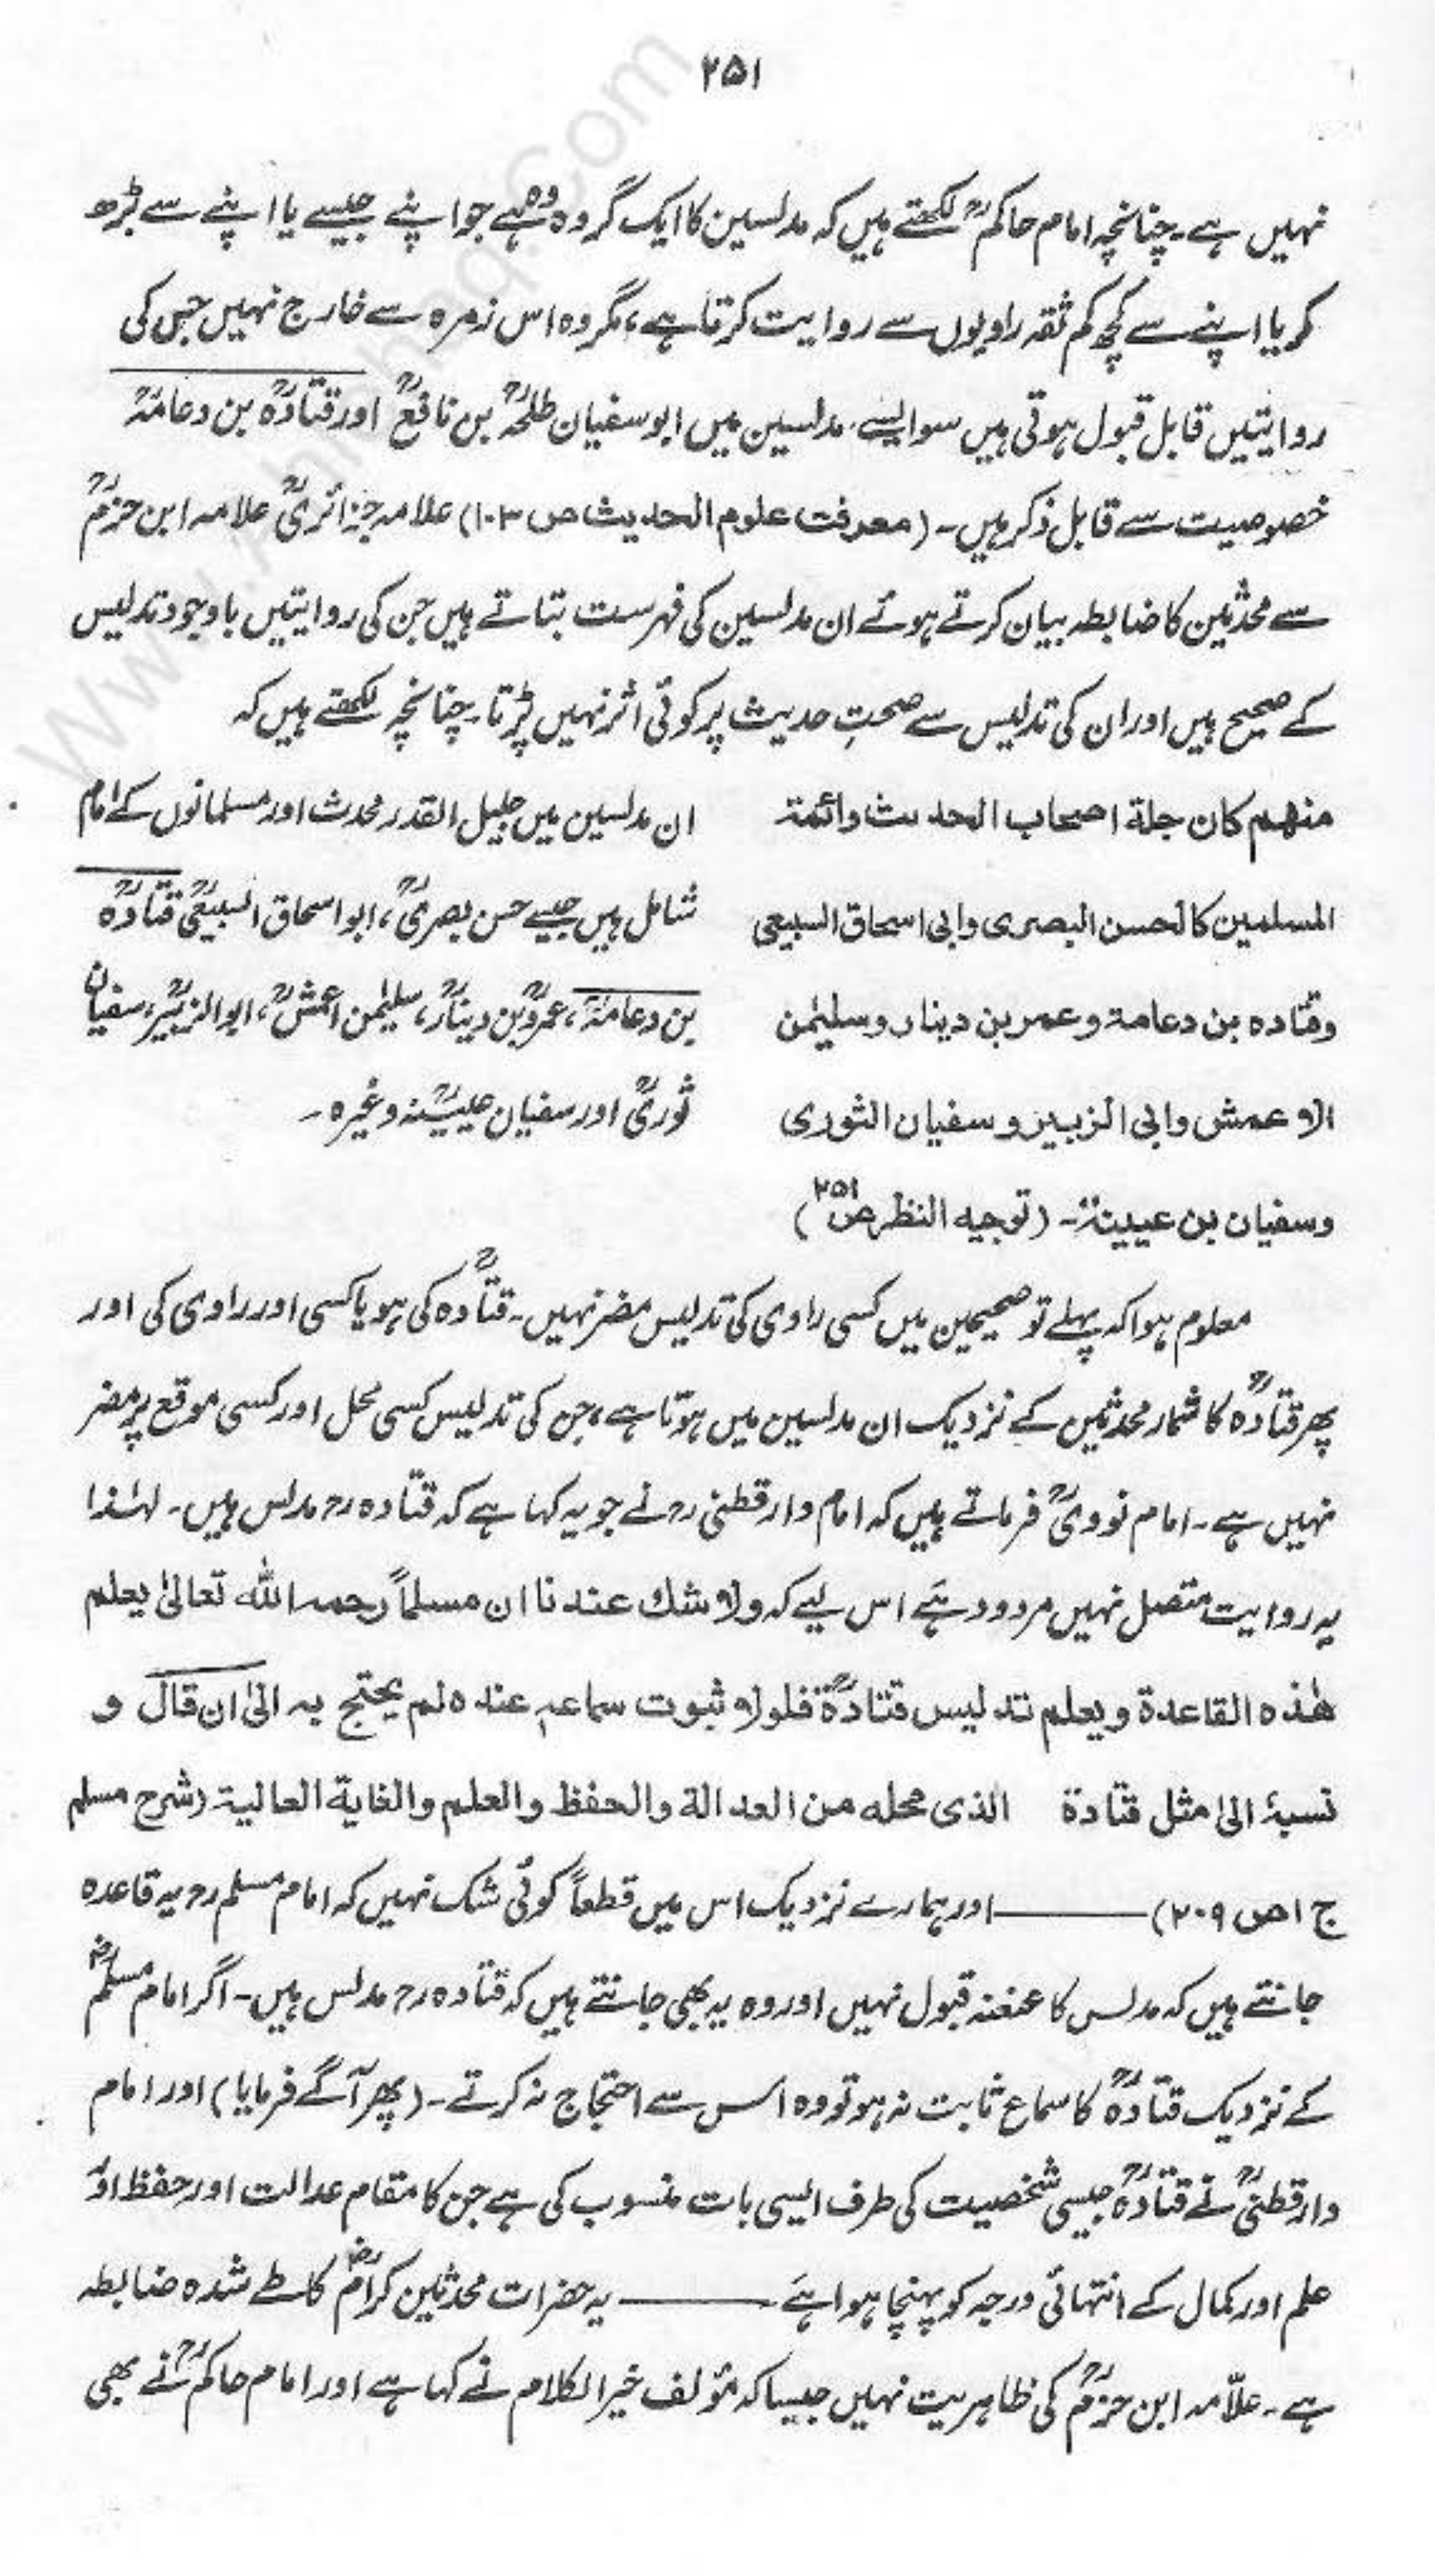 ۲۵۱
نہیں ہے۔ چنانچہ امام حاکمؒ لکھتے ہیں کہ مدلسین کا ایک گروہ وہ ہے جو اپنے جیسے یا اپنے سے بڑھ
کر یا اپنے سے کچھ کم ثقہ راویوں سے روایت کرتا ہے، مگر وہ اس زمرہ سے خارج نہیں جس کی
روایتیں قابل قبول ہوتی ہیں سو ایسے مدلسین میں ابو سفیان طلحہؒ بن نافعؒ اور قتادہؒ بن دعامۃؒ
خصوصیت سے قابل ذکر ہیں۔ (معرفت علوم الحدیث ص ۱۰۳) علامہ جزائریؒ علامہ ابن حزمؒ
سے محدثین کا ضابطہ بیان کرتے ہوئے ان مدلسین کی فہرست بتاتے ہیں جن کی روایتیں باوجود تدلیس
کے صحیح ہیں اور ان کی تدلیس سے صحتِ حدیث پر کوئی اثر نہیں پڑتا۔ چنانچہ لکھتے ہیں کہ
منهم كان جلة اصحاب الحديث وائمة
المسلمین کالحسن البصری وابی اسحاق السبیعی
وقتاده بن دعامة وعمر بن دینار وسلیمٰن
الاعمش وابی الزبیر وسفیان الثوری
وسفیان بن عیینۃ۔ (توجیه النظر ص ۲۵۱)
ان مدلسین میں جلیل القدر محدث اور مسلمانوں کے امام
شامل ہیں جیسے حسن بصریؒ، ابو اسحاق السبیعیؒ قتادہؒ
بن دعامۃؒ، عمروؒ بن دینارؒ، سلیمٰن اعمشؒ، ابو الزبیرؒ، سفیان
ثوریؒ اور سفیان عیینہؒ وغیرہ۔
معلوم ہوا کہ پہلے تو صحیحین میں کسی راوی کی تدلیس مضر نہیں۔ قتادہؒ کی ہو یا کسی اور راوی کی اور
پھر قتادہؒ کا شمار محدثین کے نزدیک ان مدلسین میں ہوتا ہے، جن کی تدلیس کسی محل اور کسی موقع پر مضر
نہیں ہے۔ امام نوویؒ فرماتے ہیں کہ امام دارقطنی رح نے جو یہ کہا ہے کہ قتادہ رح مدلس ہیں۔ لہٰذا
یہ روایت متصل نہیں مردود ہے اس لیے کہ ولا شك عندنا ان مسلماً رحمه الله تعالیٰ یعلم
هٰذه القاعدة ویعلم تدلیس قتادةؒ فلولا ثبوت سماعه عنده لم یحتج به الیٰ ان قال و
نسبهٔ الیٰ مثل قتادة الذی محله من العدالة والحفظ والعلم والغایة العالیة (شرح مسلم
ج ۱ ص ۲۰۹) ——— اور ہمارے نزدیک اس میں قطعاً کوئی شک نہیں کہ امام مسلم رح یہ قاعدہ
جانتے ہیں کہ مدلس کا عنعنہ قبول نہیں اور وہ یہ بھی جانتے ہیں کہ قتادہ رح مدلس ہیں۔ اگر امام مسلمؒ
کے نزدیک قتادہؒ کا سماع ثابت نہ ہو تو وہ اس سے احتجاج نہ کرتے۔ (پھر آگے فرمایا) اور امام
دارقطنیؒ نے قتادہؒ جیسی شخصیت کی طرف ایسی بات منسوب کی ہے جن کا مقام عدالت اور حفظ اور
علم اور کمال کے انتہائی درجہ کو پہنچا ہوا ہے ——— یہ حضرات محدثین کرامؒ کا طے شدہ ضابطہ
ہے۔ علّامہ ابن حزمؒ کی ظاہریت نہیں جیسا کہ مؤلف خیر الکلام نے کہا ہے اور امام حاکمؒ نے بھی